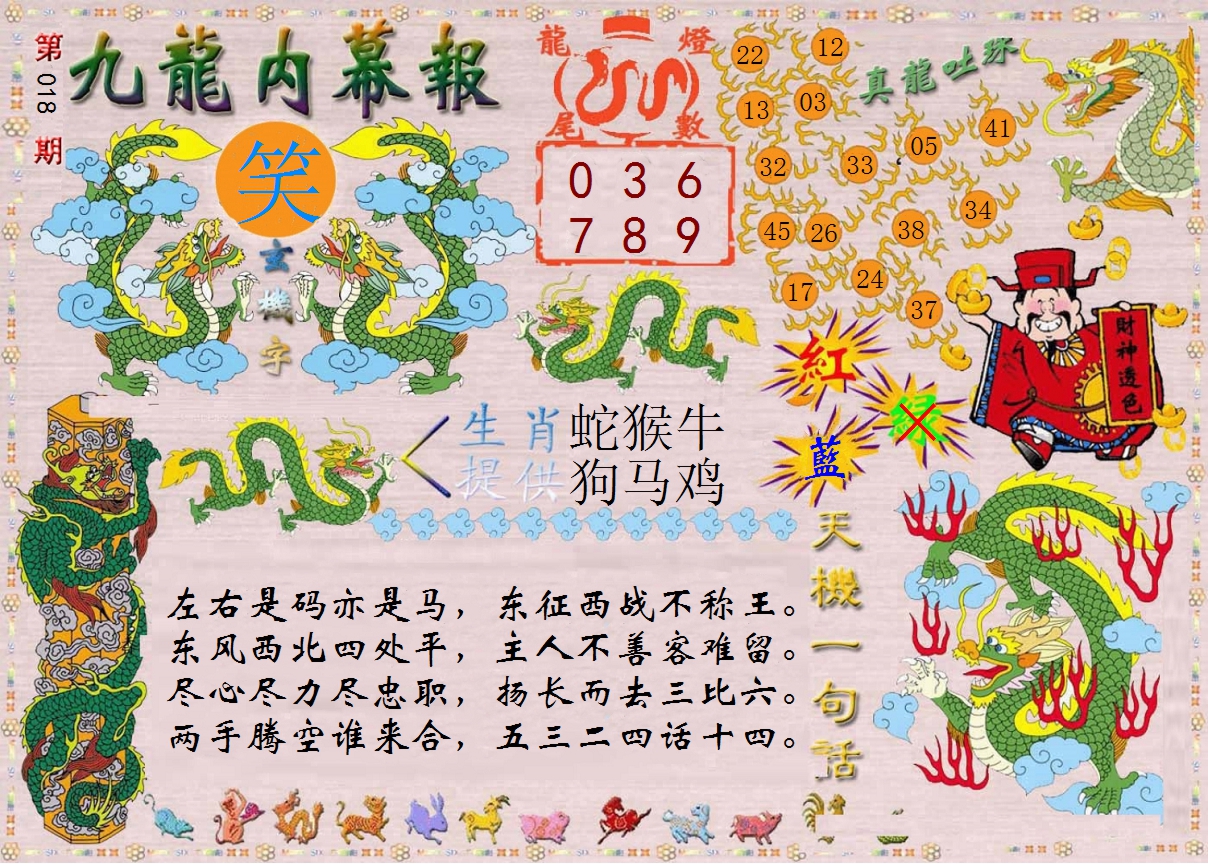 第018期
九龍内幕報
笑
玄機字
龍燈
尾數
0 3 6
7 8 9
真龍吐珠
22 12
13 03
32 33 05 41
45 26 38 34
17 24 37
財神透色
紅
绿
藍
生肖 蛇猴牛
提供 狗马鸡
左右是码亦是马，东征西战不称王。
东风西北四处平，主人不善客难留。
尽心尽力尽忠职，扬长而去三比六。
两手腾空谁来合，五三二四话十四。
天機一句話